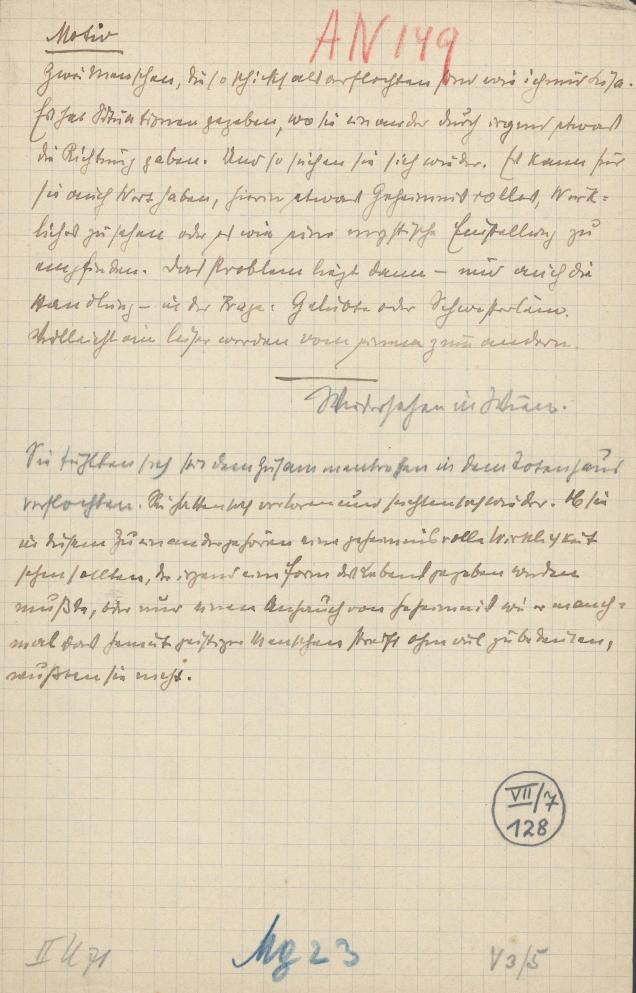 Motiv
AN 149
Zwei Menschen, die so schicksalsverflochten sind wie ich und Lisa.
Es hat Situationen gegeben, wo sie einander durch irgend etwas
die Richtung gaben. Und so suchen sie sich wieder. Es kann für
sie auch Wert haben, hierin etwas Geheimnisvolles, Wirk-
liches zu sehen oder es wie eine mystische Einstellung zu
empfinden. Das Problem liegt dann – und auch die
Handlung – in der Frage: Geliebte oder Schwesterlein.
Vielleicht ein leises werden vom einen zum andern.
Wiedersehen in Wien.
Sie fühlten sich seit dem Zusammentreffen in dem Totenhaus
verflochten. Sie hatten sich verloren und suchten sich wieder. Ob sie
in diesem Zueinandergehören eine geheimnisvolle Wirklichkeit
sehen sollten, der irgend eine Form des Lebens gegeben werden
mußte, oder nur einen Anhauch von Geheimnis wie er manch-
mal das Gemüt geistiger Menschen streift ohne viel zu bedeuten,
wußten sie nicht.
VII/7
128
Mg 23
V 3/5